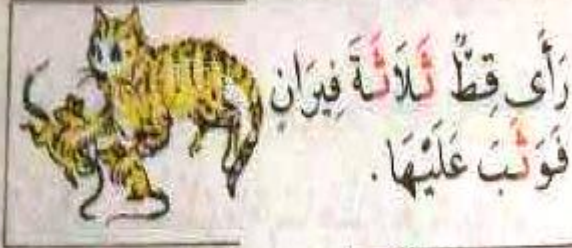 رَأَى قِطٌّ ثَلَاثَةَ فِيرَانٍ
فَوَثَبَ عَلَيْهَا.